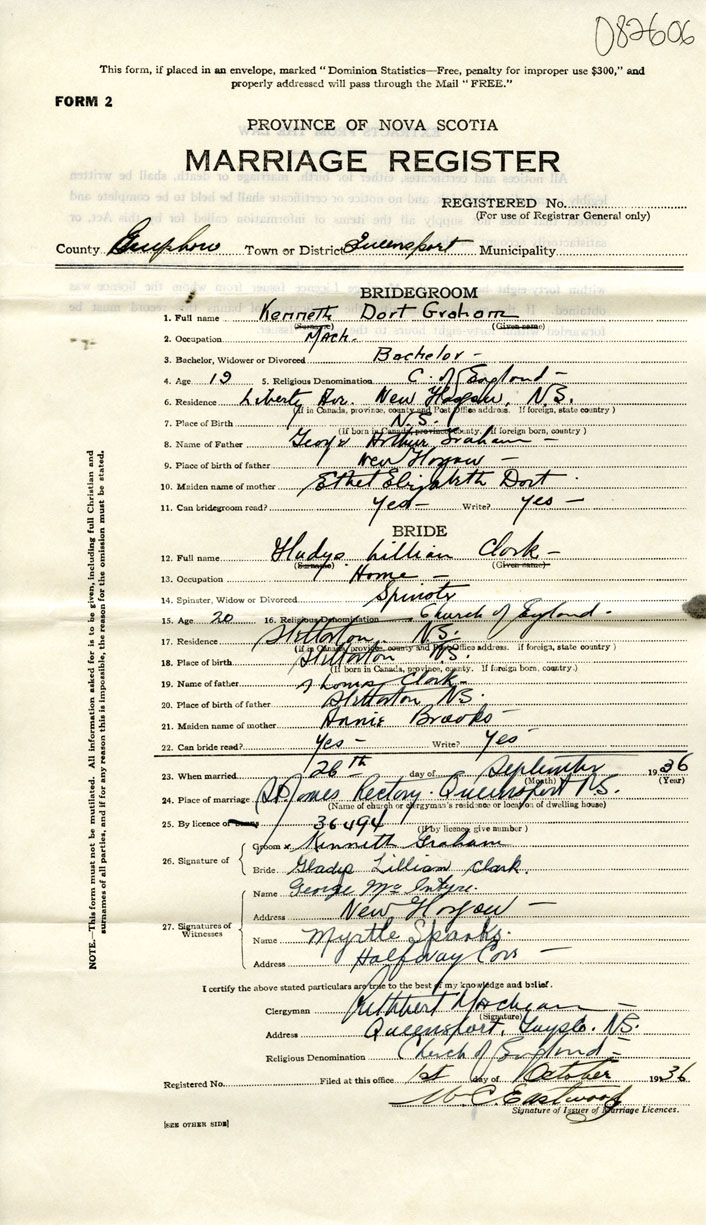 082606
This form, if placed in an envelope, marked "Dominion Statistics—Free, penalty for improper use $300," and
properly addressed will pass through the Mail "FREE."
FORM 2
PROVINCE OF NOVA SCOTIA
MARRIAGE REGISTER
REGISTERED No.
(For use of Registrar General only)
County Town or District Queensport Municipality
BRIDEGROOM
1. Full name Kenneth Dort Graham
(Surname) (Given name)
2. Occupation Mach.
3. Bachelor, Widower or Divorced Bachelor -
4. Age 19 5. Religious Denomination C. of England -
6. Residence Liberty Ave. New Glasgow, N.S.
(If in Canada, province, county and Post Office address. If foreign, state country)
7. Place of Birth N.S.
(If born in Canada, province, county. If foreign, country)
8. Name of Father George Arthur Graham -
9. Place of birth of father New Glasgow -
10. Maiden name of mother Ethel Elizabeth Dort
11. Can bridegroom read? Yes - Write? Yes -
BRIDE
12. Full name Gladys Lillian Clark -
(Surname) (Given name)
13. Occupation Home -
14. Spinster, Widow or Divorced Spinster
15. Age 20 16. Religious Denomination Church of England -
17. Residence Stellarton NS.
(If in Canada, province, county and Post Office address. If foreign, state country)
18. Place of birth Stellarton N.S.
(If born in Canada, province, county. If foreign, country.)
19. Name of father Thomas Clark -
20. Place of birth of father Stellarton NS.
21. Maiden name of mother Annie Brooks -
22. Can bride read? Yes - Write? Yes -
23. When married 26th day of September 1936
(Month) (Year)
24. Place of marriage St James Rectory. Queensport N.S.
(Name of church or clergyman's residence or location of dwelling house)
25. By licence or 36494
(If by licence, give number)
26. Signature of Groom x Kenneth Graham
Bride Gladys Lillian Clark.
27. Signatures of Witnesses
Name George McIntyre.
Address New Glasgow -
Name Myrtle Sparks.
Address Halfway Cove -
I certify the above stated particulars are true to the best of my knowledge and belief.
Clergyman Cuthbert
(Signature)
Address Queensport, Guysb. NS.
Religious Denomination Church of England -
Registered No. Filed at this office 1st day of October 1936
C. Eastwood
Signature of Issuer of Marriage Licences.
[SEE OTHER SIDE]
NOTE.—This form must not be mutilated. All information asked for is to be given, including full Christian and
surnames of all parties, and if for any reason this is impossible, the reason for the omission must be stated.